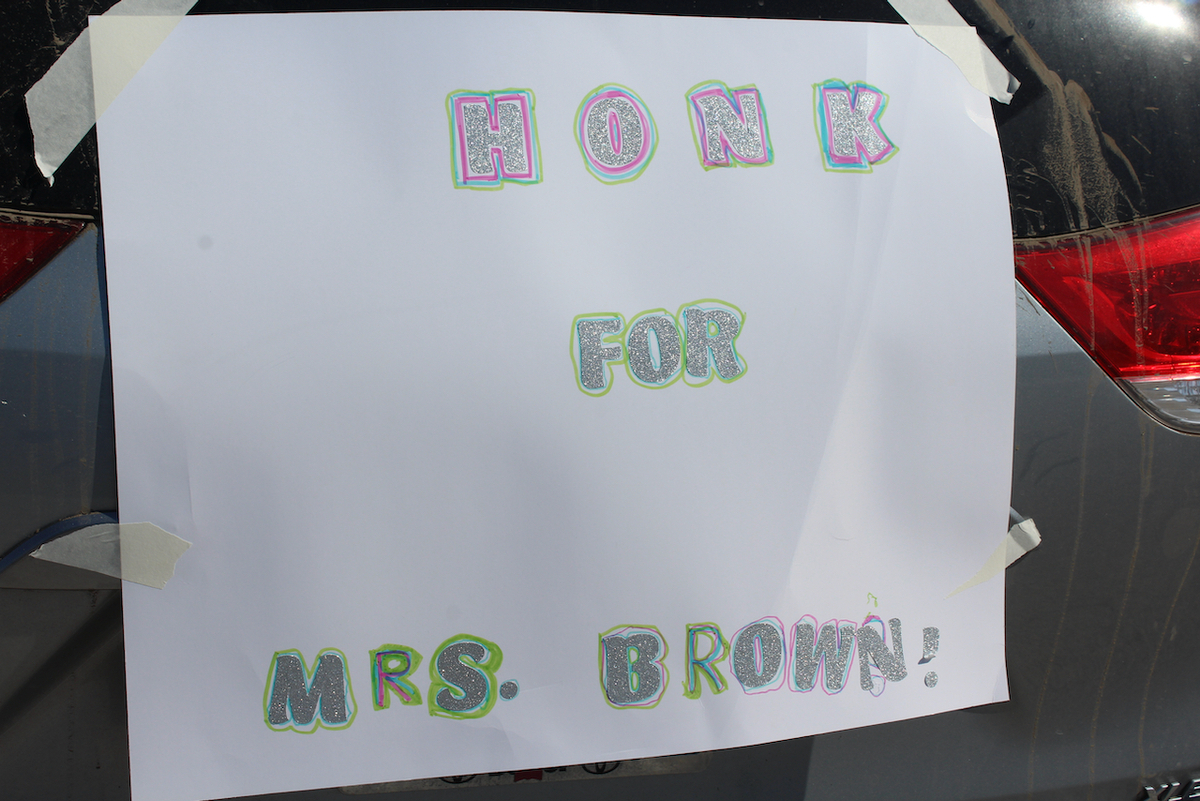 HONK
FOR
MRS. BROWN!